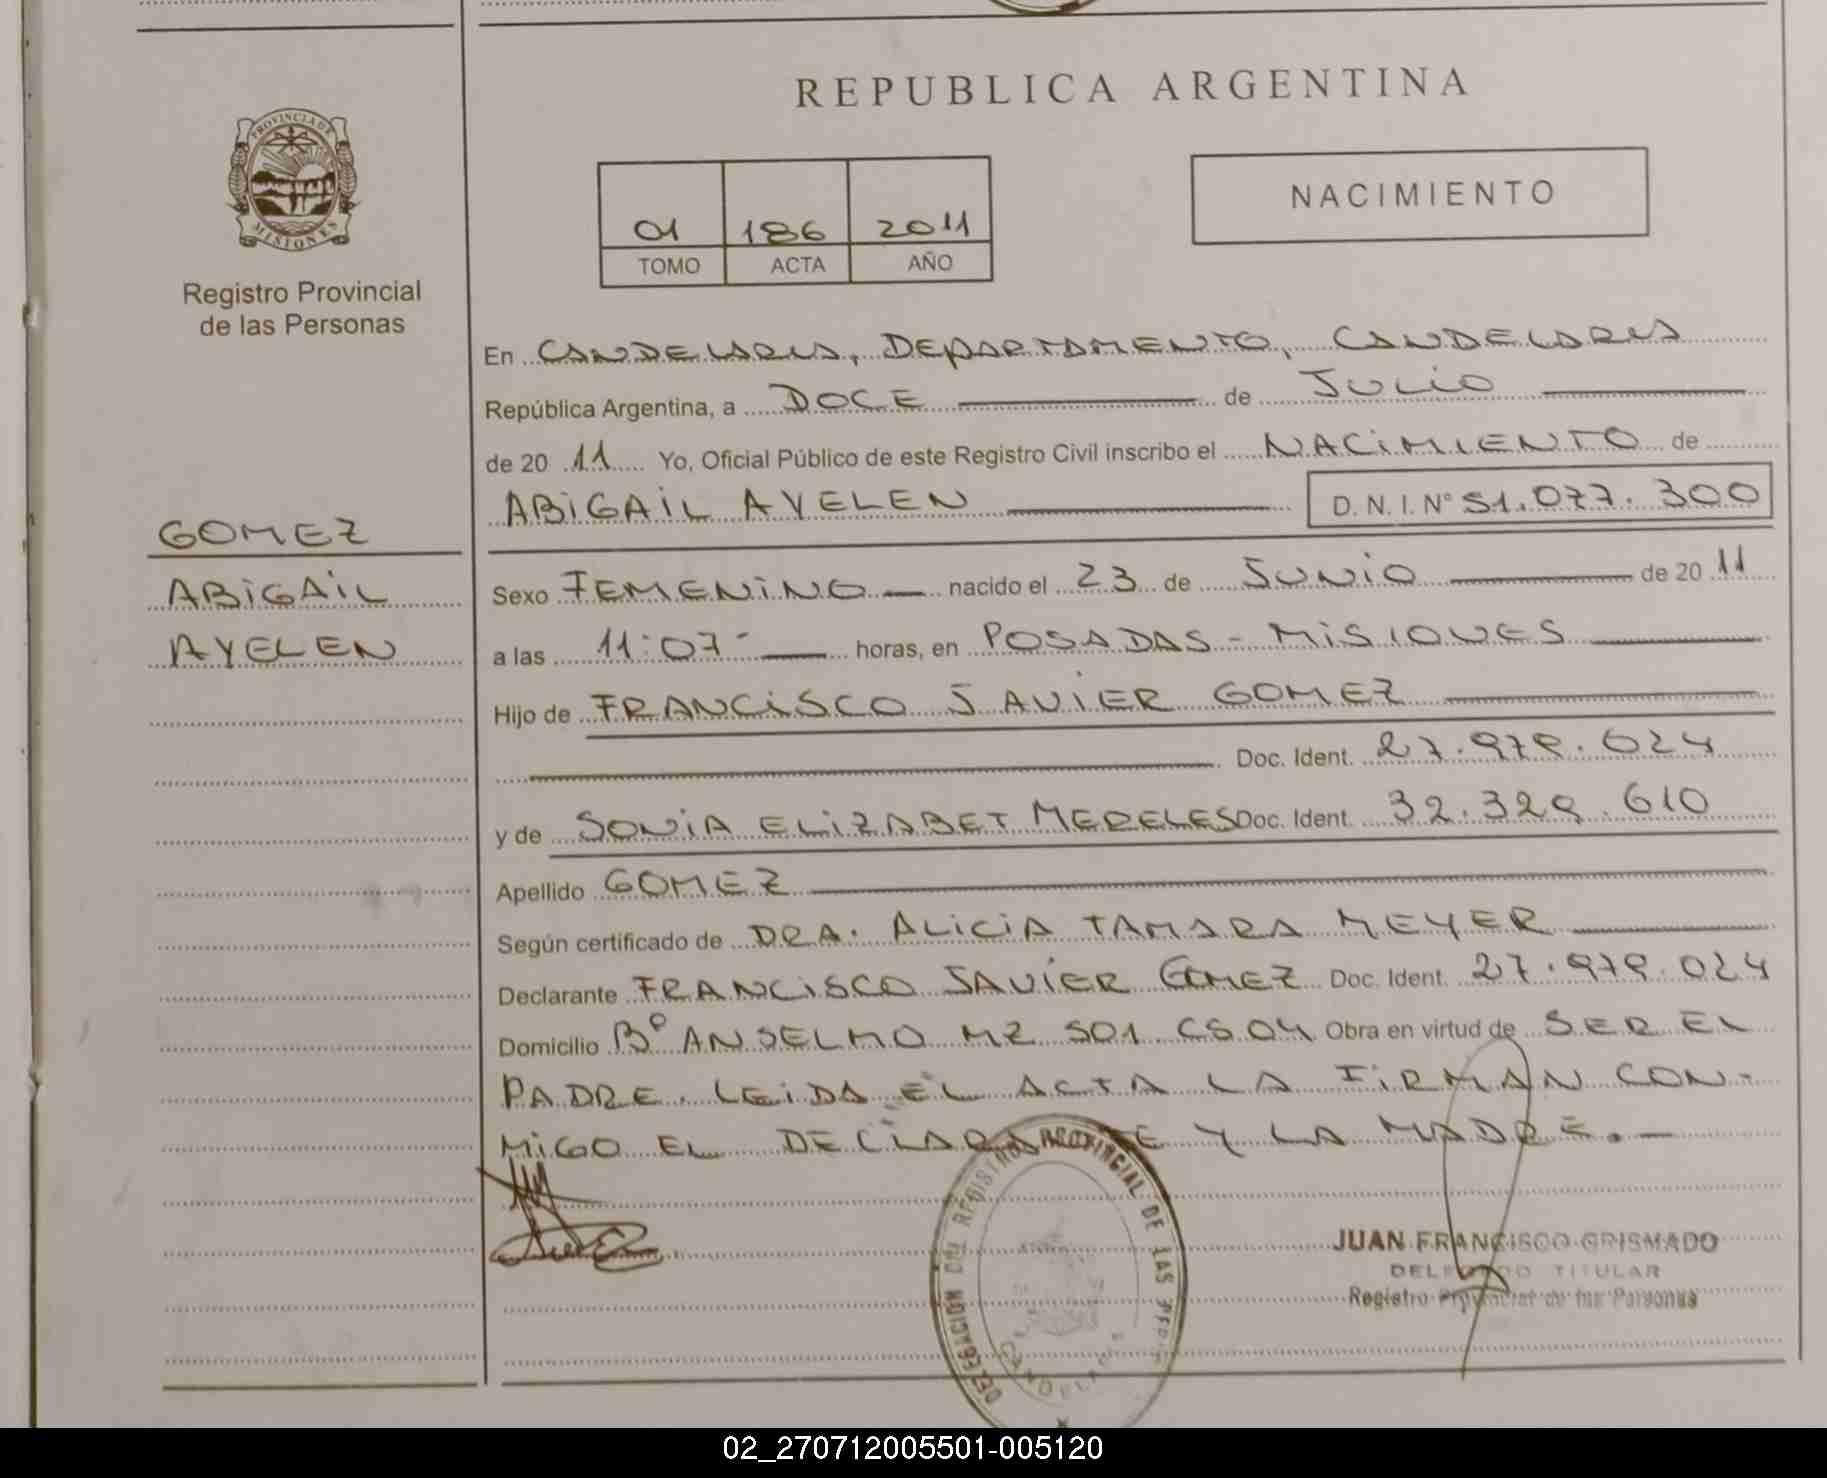 REPUBLICA ARGENTINA
PROVINCIA DE MISIONES
Registro Provincial
de las Personas
01 186 2011
TOMO ACTA AÑO
NACIMIENTO
En CANDELARIA, DEPARTAMENTO, CANDELARIA
República Argentina, a DOCE de JULIO
de 20 11 Yo, Oficial Público de este Registro Civil inscribo el NACIMIENTO de
ABIGAIL AYELEN D. N. I. Nº 51.077.300
GOMEZ
ABIGAIL
AYELEN
Sexo FEMENINO nacido el 23 de JUNIO de 20 11
a las 11:07- horas, en POSADAS - MISIONES
Hijo de FRANCISCO JAVIER GOMEZ
Doc. Ident. 27.979.024
y de SONIA ELIZABET MERELES Doc. Ident. 32.329.610
Apellido GOMEZ
Según certificado de DRA. ALICIA TAMARA MEYER
Declarante FRANCISCO JAVIER GOMEZ Doc. Ident. 27.979.024
Domicilio Bº ANSELMO MZ 501 CS 04 Obra en virtud de SER EL
PADRE. LEIDA EL ACTA LA FIRMAN CON-
MIGO EL DECLARANTE Y LA MADRE.-
DELEGACION DEL REGISTRO PROVINCIAL DE LAS
CANDELARIA
JUAN FRANCISCO GRISMADO
DELEGADO TITULAR
Registro Provincial de las Personas
02_270712005501-005120